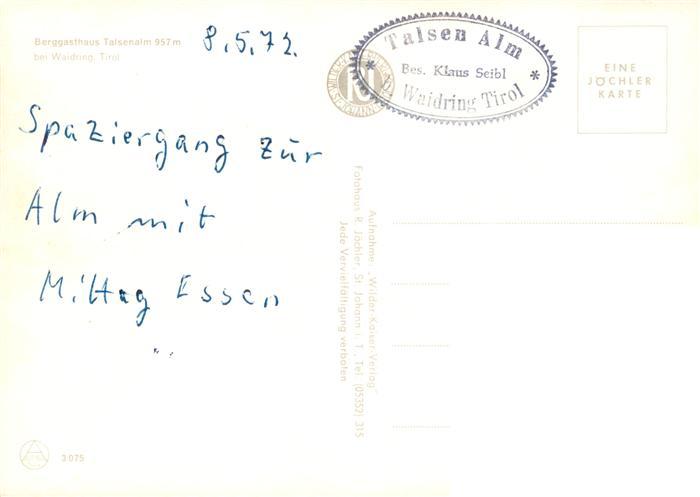 Berggasthaus Talsenalm 957m
bei Waidring, Tirol
8.5.72.
Talsen Alm
* Bes. Klaus Seibl *
bei Waidring Tirol
EINE
JÖCHLER
KARTE
Spaziergang zur
Alm mit
Mittag Essen
Aufnahme: „Wilder-Kaiser-Verlag"
Fotohaus R. Jöchler, St. Johann i. T., Tel. (05352) 315
Jede Vervielfältigung verboten
3075